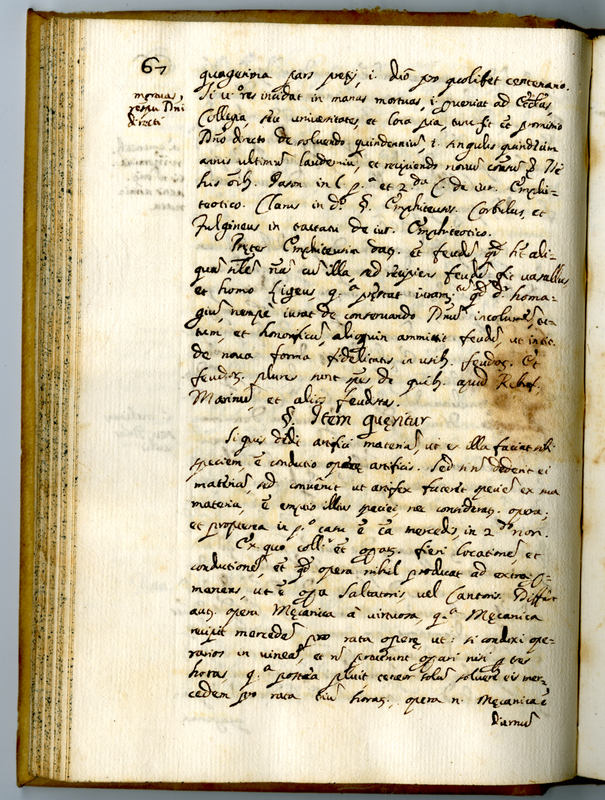 67
mortuas,
respu Dni
directi
quagesima pars pretij, i. duo pro quolibet centenario.
Si uo res incidat in manus mortuas, i. perueniat ad Ecclas,
Collegia, seu uniuersitates, et loca pia, tunc fit et promissio
Dno directo de soluendo quindennium i. singulis quindecim
annis ultimum laudemium, et recipiendo nouum
his Jason in l. p.a et 2.da C. de iur. Emphi-
teotico. Clarus in d.o §. Emphiteusis. Corbulus, et
Fulgineus in tractatu de iur. Emphiteotico.
Preter Emphiteusim dat et feudu qd ht ali-
qua cu illa sed recipiens feudu fit uasallus
et homo Ligeus q.a prestat iuram.tum qd dr homa-
giu, nempè iurat de conseruando Dnu incolume, tu-
tum, et honorificu, alioquin ammittit feudu, ut in tit.
de noua forma fidelitatis in usib. feudor. Et
feudor. plures sunt spes de quib. apud
Marinu, et alios feudistas
§. Item queritur
Si quis dedit artifici materia, ut ex illa faciat sibi
speciem, e conductio opere artificis. Sed si n dederit ei
materia, sed conuenit ut artifex faceret specie ex sua
materia, e emptio illius speciei nec considerat. opera;
et propterea in p.o casu e ea merces, in 2.do non.
Ex quo coll. et opas. fieri locatione, et
conductione, et qd opera nihil producat ad extra
manens, ut e opa Saltatoris uel Cantoris. Differt
aut. opera Mecanica à uirtuosa, q.a Mecanica
recipit mercede pro rata opere, ut: si conduxi ope-
rarios in uinea, et n potuerunt operari nisi p tres
horas, q.a postea pluit teneor solu soluere eis mer-
cedem pro rata triu horar., opera n. Mecanica e
diurnu